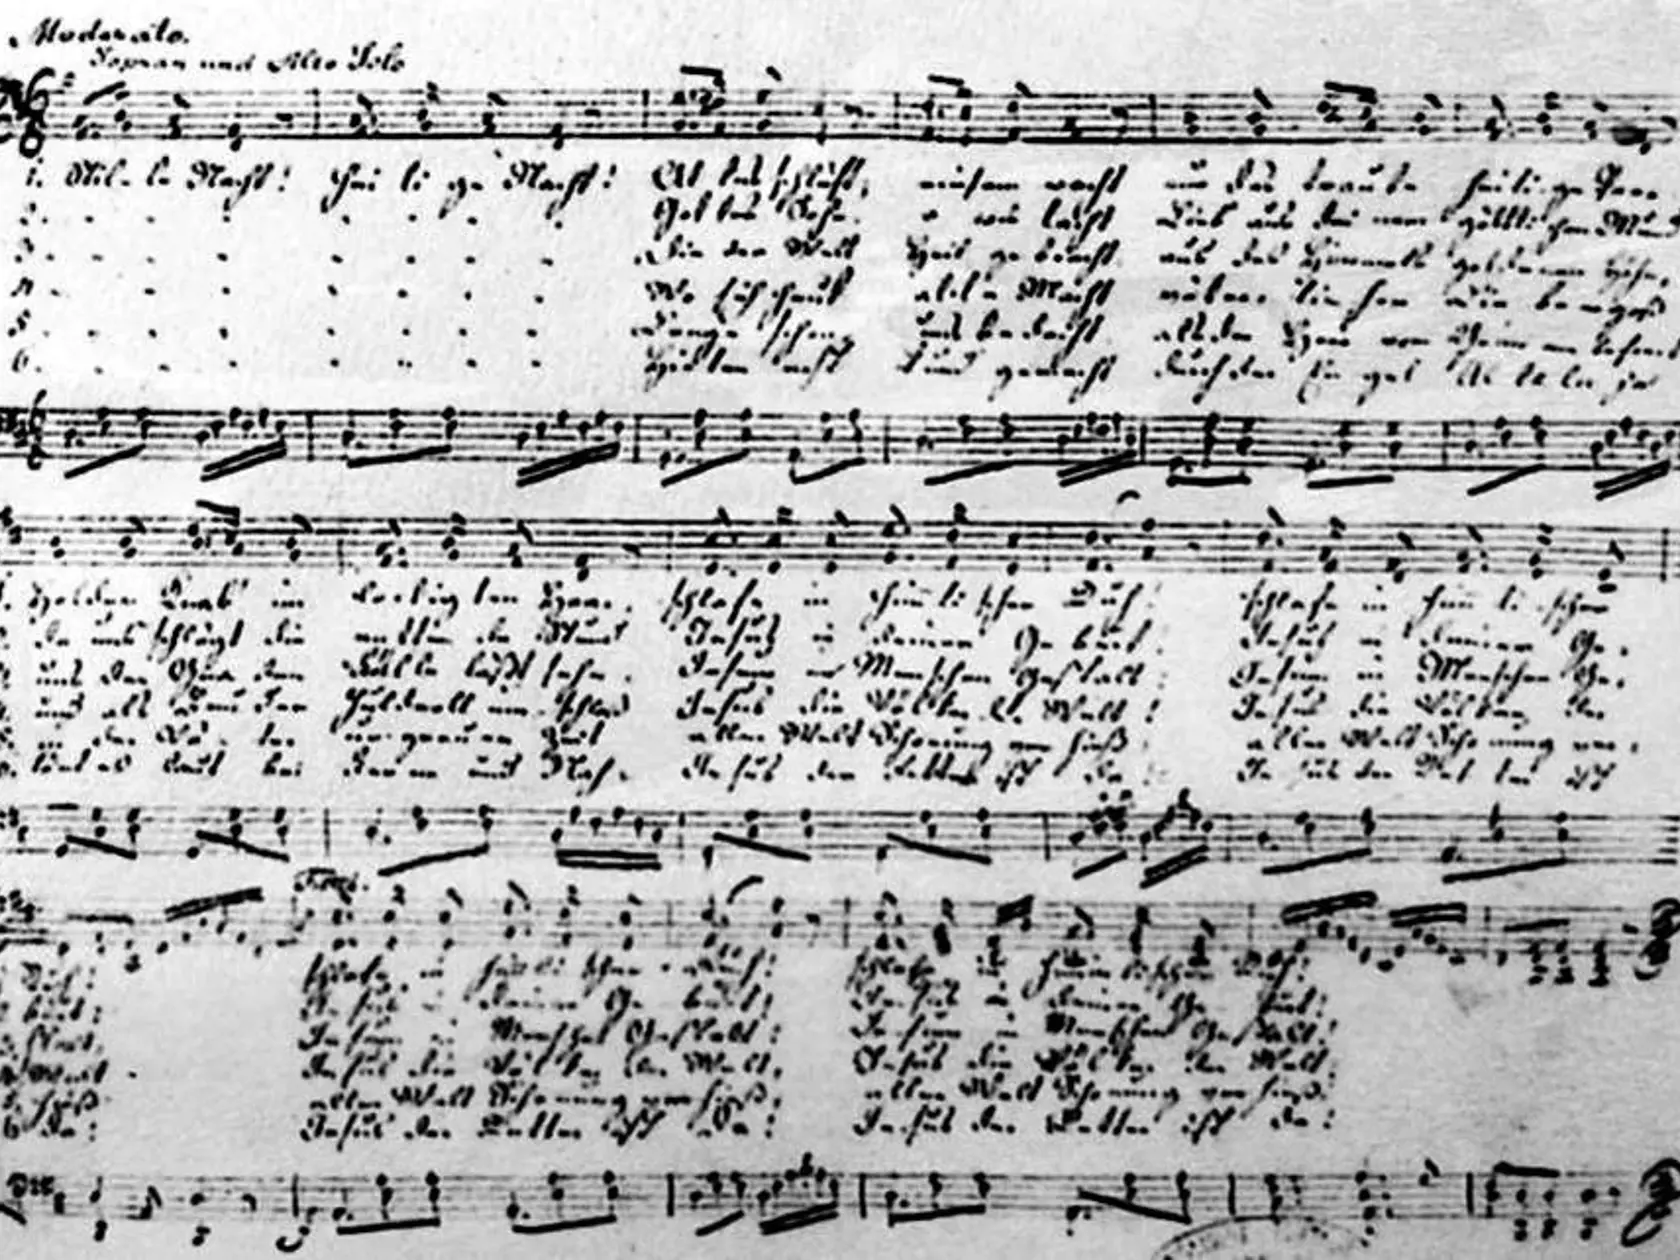 Moderato.
Sopran und Alto Solo
1. Stille Nacht! Heilige Nacht! Alles schläft, einsam wacht nur das traute heilige Paar.
2. Gottes Sohn. o wie lacht Lieb aus deinem göttlichen Mund
3. Die der Welt Heil gebracht aus des Himmels goldenen Höhn,
4. Wo sich heut alle Macht väterlicher Liebe ergoß
5. Lange schon, uns bedacht als der Herr vom Grimme befreit
6. Hirten erst kund gemacht durch der Engel Alleluja
1. Holder Knab' im lockigten Haar, schlafe in himmlischer Ruh! schlafe in himmlischer
da uns schlägt die rettende Stund Jesus in deiner Geburt! Jesus in deiner Ge-
uns der Gnaden Fülle läßt sehn. Jesum in Menschen Gestalt Jesum in Menschen Ge-
und als Bruder huldvoll umschloß Jesus die Völker der Welt! Jesus die Völker der
in der Väter urgrauer Zeit aller Welt Schonung verhieß. aller Welt Schonung ver-
tönt es laut bei Ferne und Nah. Jesus der Retter ist da! Jesus der Retter ist
Ruh! schlafe in himmlischer Ruh! schlafe in himmlischer Ruh!
burt! Jesus in deiner Geburt! Jesus in deiner Geburt!
stalt, Jesum in Menschen Gestalt! Jesum in Menschen Gestalt!
Welt Jesus die Völker der Welt. Jesus die Völker der Welt.
hieß aller Welt Schonung verhieß, aller Welt Schonung verhieß.
6 da! Jesus der Retter ist da! Jesus der Retter ist da!